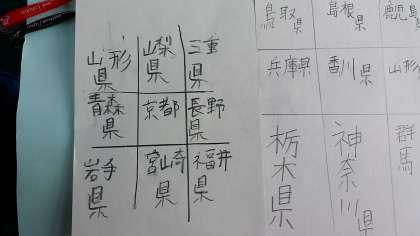 山形県
山梨県
三重県
青森県
京都
長野県
岩手県
宮崎県
福井県
鳥取県
島根県
鹿児島
兵庫県
香川県
山形
栃木県
神奈川県
群馬